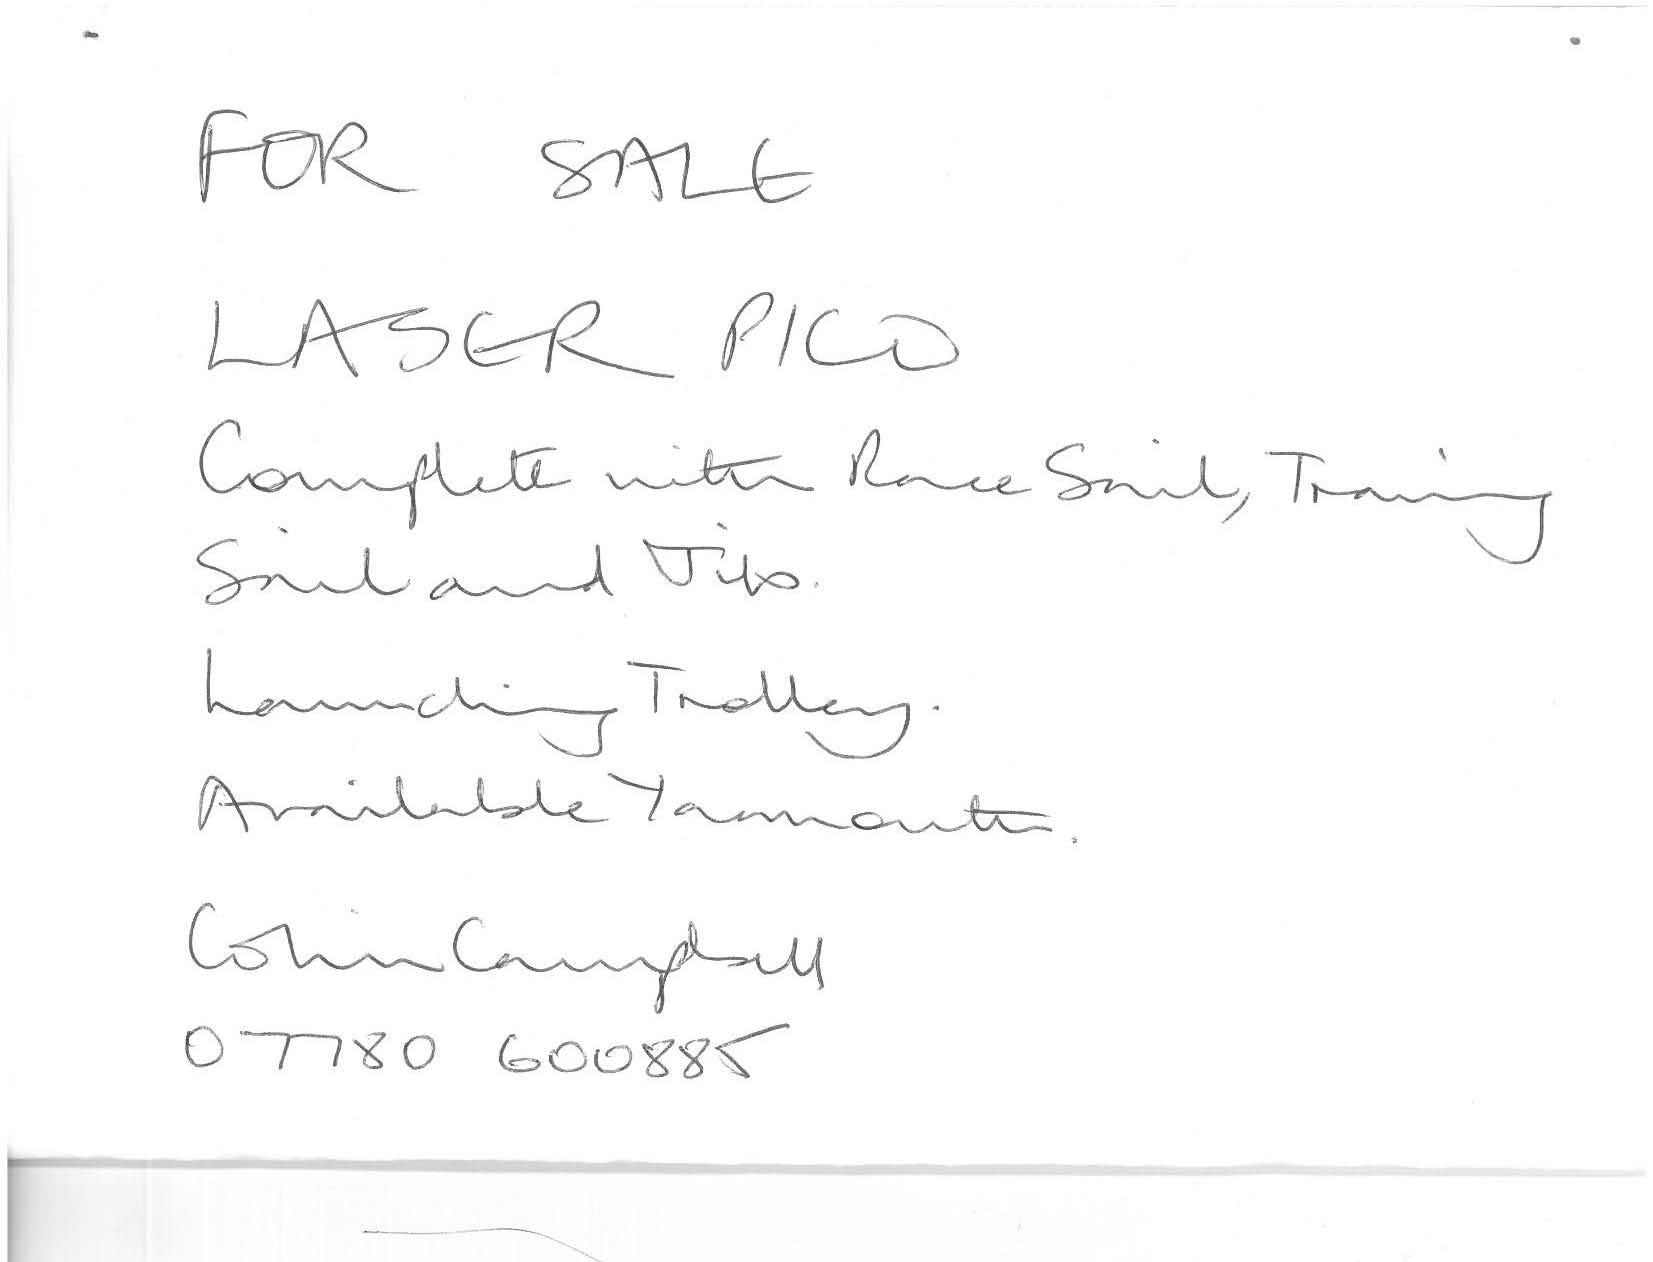 FOR SALE
LASER PICO
Complete with Race Sail, Training
Sail and Jib.
Launching Trolley.
Available Yarmouth.
Colin Campbell
07780 600885